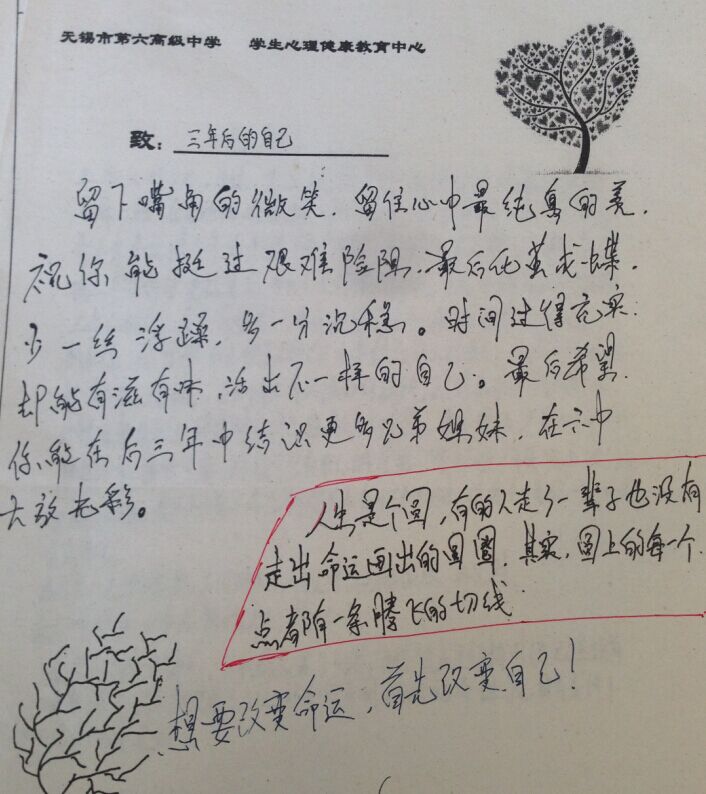 无锡市第六高级中学 学生心理健康教育中心
致：三年后的自己
留下嘴角的微笑，留住心中最纯真的美，
祝你能挺过艰难险阻，最后化茧成蝶，
少一丝浮躁，多一分沉稳。时间过得充实，
却能有滋有味，活出不一样的自己。最后希望
你能在后三年中结识更多兄弟姐妹，在六中
大放光彩。
人生是个圆，有的人走了一辈子也没有
走出命运画出的圆圈，其实，圆上的每一个
点都有一条腾飞的切线
想要改变命运，首先改变自己！